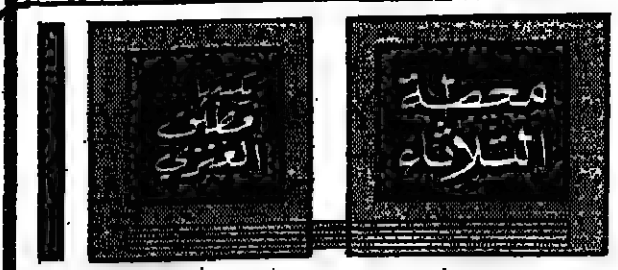 محطة
الثلاثاء
يكتبها
مطلق
العنزي